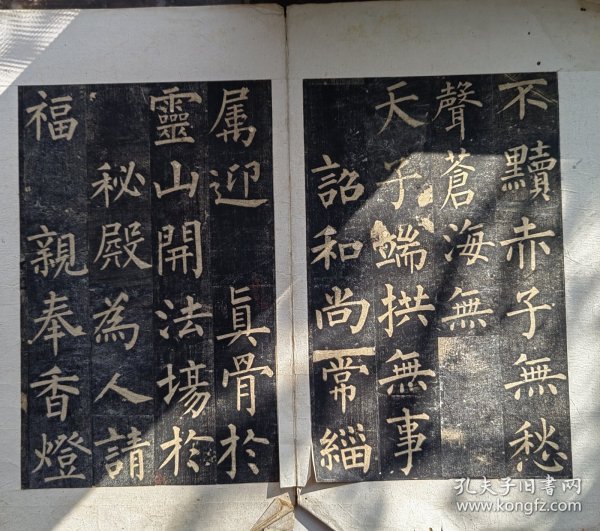 不黷赤子無愁
聲蒼海無
天子端拱無事
詔和尚常緇
属迎真骨於
靈山開法場於
秘殿為人請
福親奉香燈
孔夫子旧书网
www.kongfz.com